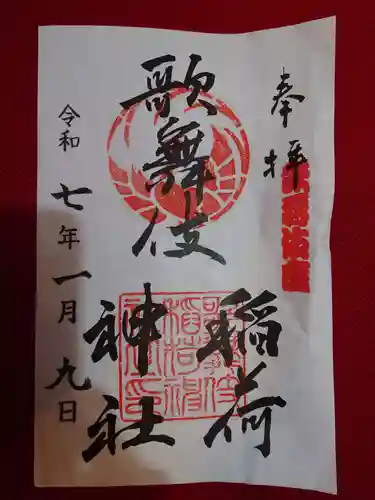 奉拝
歌舞伎
稲荷
神社
令和七年一月九日